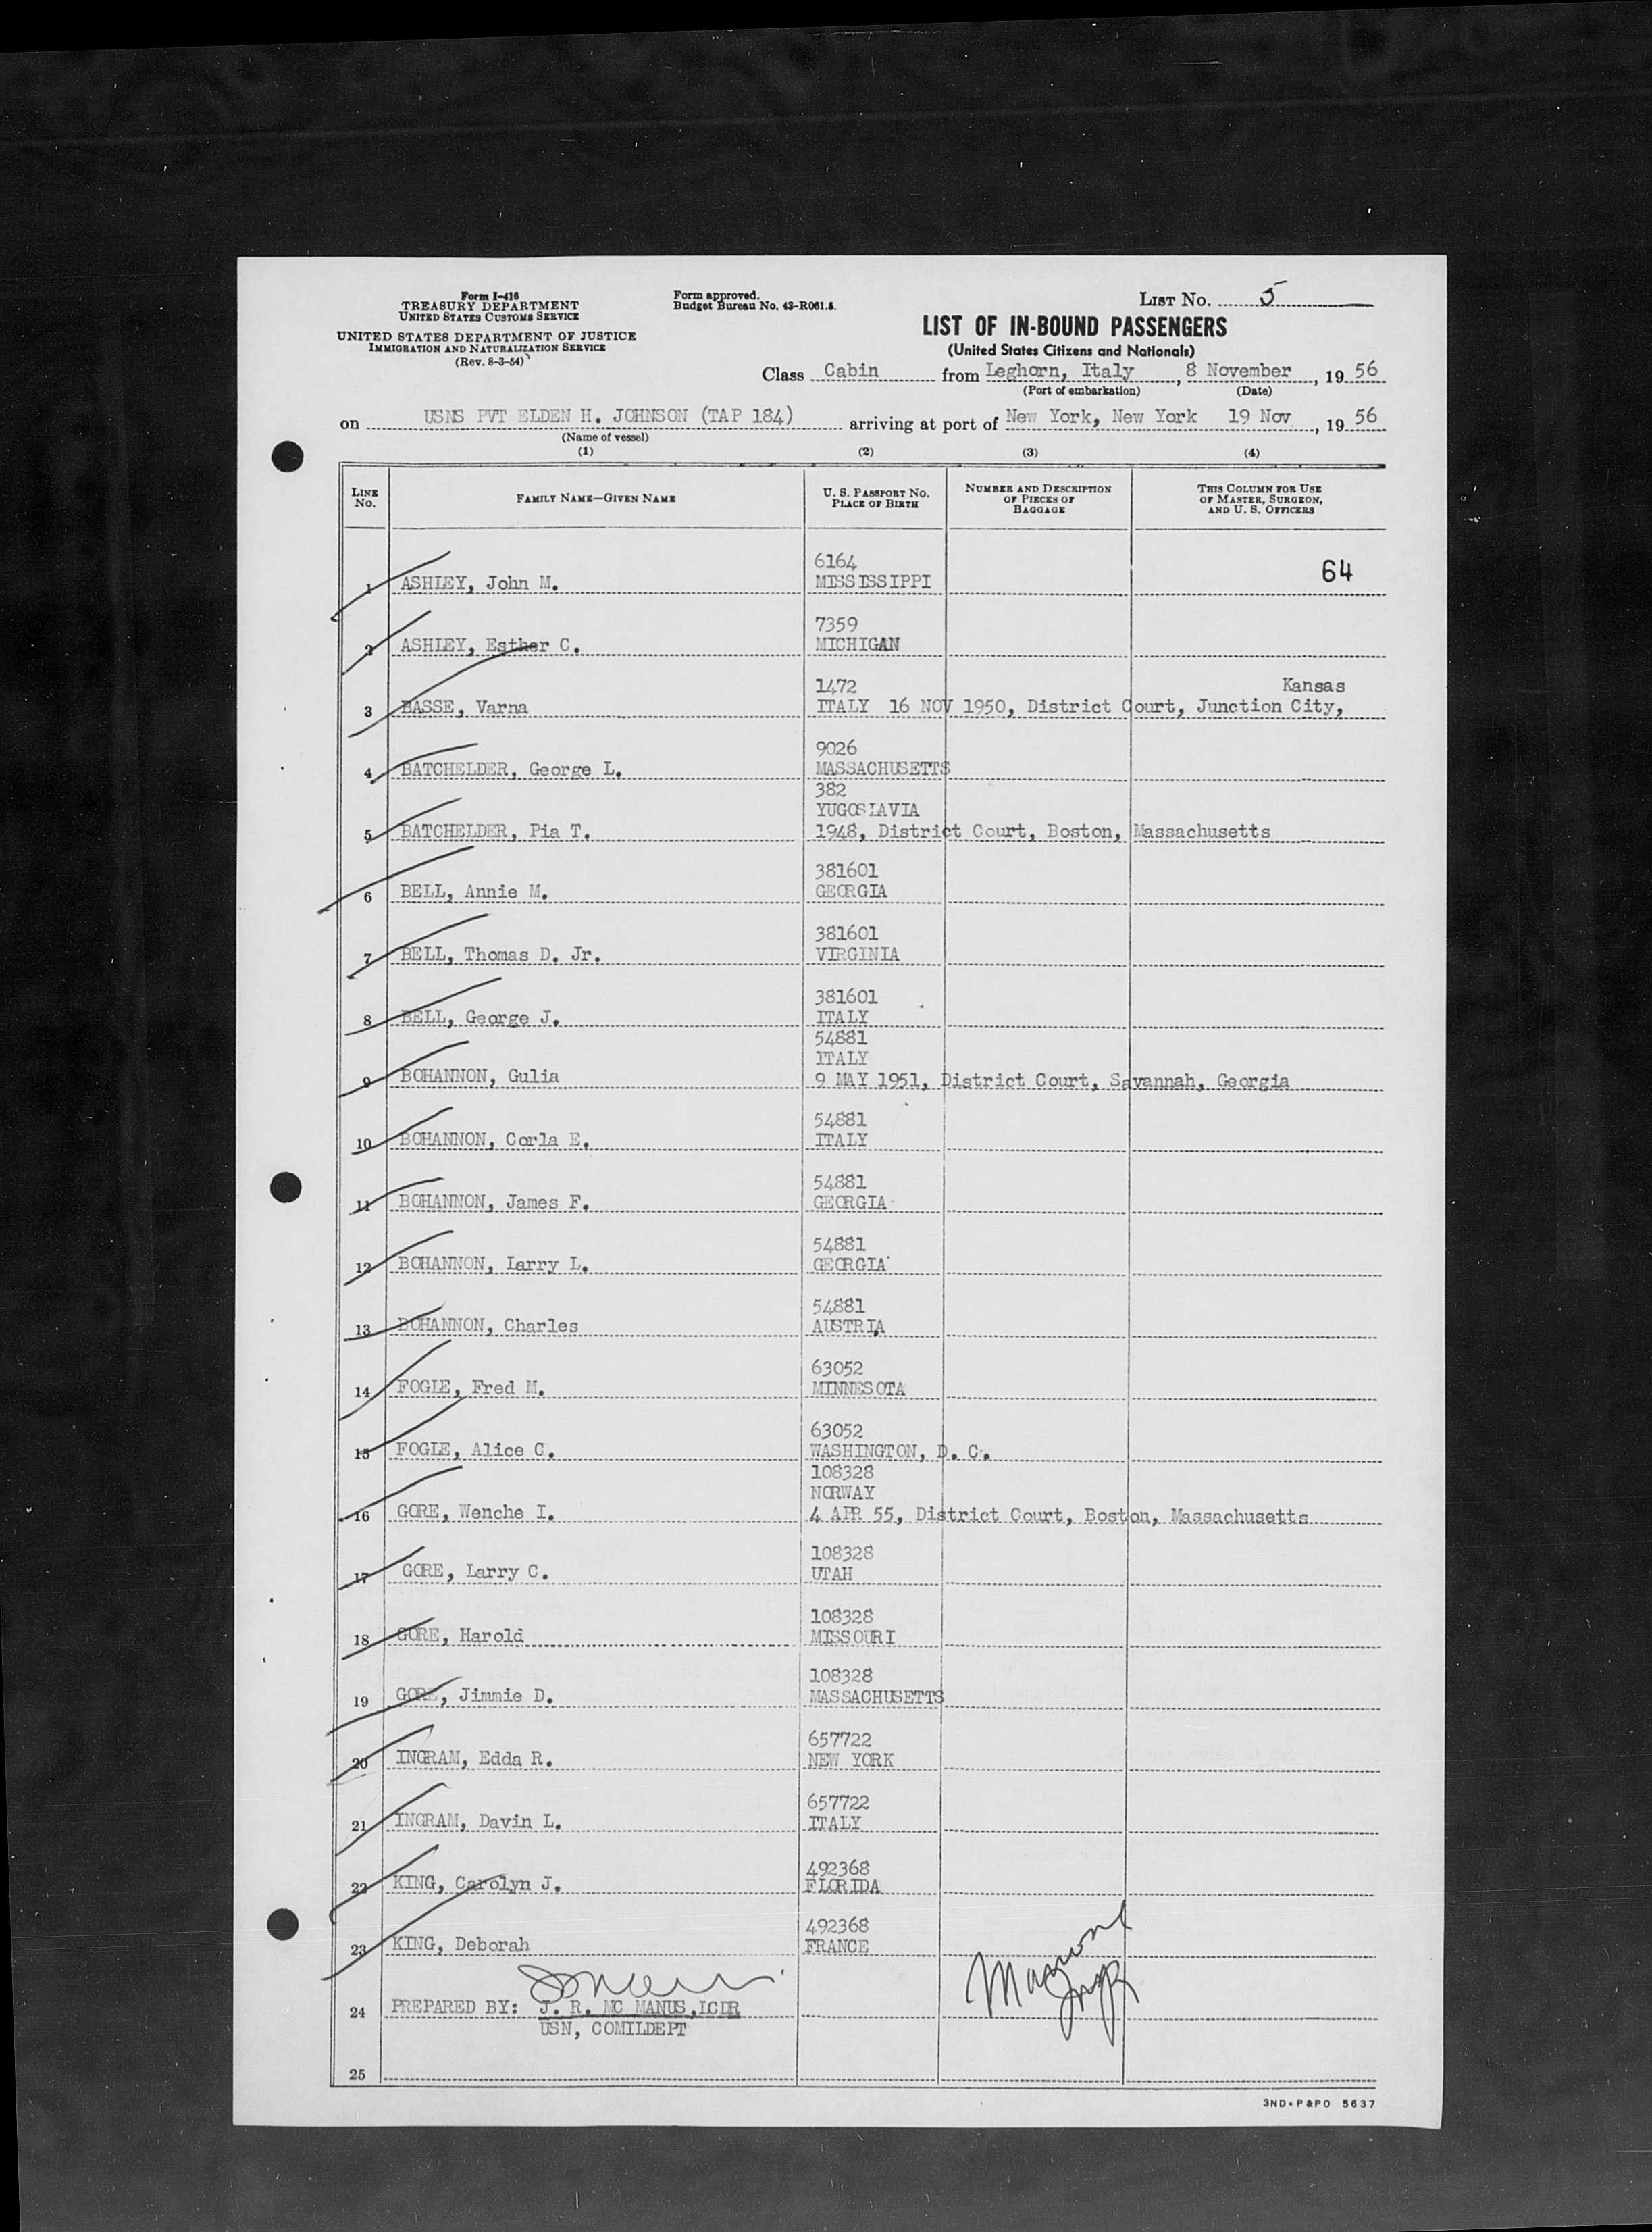 Form I-416
TREASURY DEPARTMENT
UNITED STATES CUSTOMS SERVICE
UNITED STATES DEPARTMENT OF JUSTICE
IMMIGRATION AND NATURALIZATION SERVICE
(Rev. 8-3-54)
Form approved.
Budget Bureau No. 43-R061.5.
LIST No. 5
LIST OF IN-BOUND PASSENGERS
(United States Citizens and Nationals)
Class Cabin from Leghorn, Italy, 8 November, 19 56
(Port of embarkation) (Date)
on USNS PVT ELDEN H. JOHNSON (TAP 184) arriving at port of New York, New York 19 Nov, 19 56
(Name of vessel)
(1) (2) (3) (4)
LINE No. FAMILY NAME—GIVEN NAME U. S. PASSPORT NO. PLACE OF BIRTH NUMBER AND DESCRIPTION OF PIECES OF BAGGAGE THIS COLUMN FOR USE OF MASTER, SURGEON, AND U. S. OFFICERS
6164 64
1 ASHLEY, John M. MISSISSIPPI
7359
2 ASHLEY, Esther C. MICHIGAN
1472 Kansas
3 BASSE, Varna ITALY 16 NOV 1950, District Court, Junction City,
9026
4 BATCHELDER, George L. MASSACHUSETTS
382
YUGOSLAVIA
5 BATCHELDER, Pia T. 1948, District Court, Boston, Massachusetts
381601
6 BELL, Annie M. GEORGIA
381601
7 BELL, Thomas D. Jr. VIRGINIA
381601
8 BELL, George J. ITALY
54881
ITALY
9 BOHANNON, Gulia 9 MAY 1951, District Court, Savannah, Georgia
54881
10 BOHANNON, Corla E. ITALY
54881
11 BOHANNON, James F. GEORGIA
54881
12 BOHANNON, Larry L. GEORGIA
54881
13 BOHANNON, Charles AUSTRIA
63052
14 FOGLE, Fred M. MINNESOTA
63052
15 FOGLE, Alice C. WASHINGTON, D. C.
108328
NORWAY
16 GORE, Wenche I. 4 APR 55, District Court, Boston, Massachusetts
108328
17 GORE, Larry C. UTAH
108328
18 GORE, Harold MISSOURI
108328
19 GORE, Jimmie D. MASSACHUSETTS
657722
20 INGRAM, Edda R. NEW YORK
657722
21 INGRAM, Davin L. ITALY
492368
22 KING, Carolyn J. FLORIDA
492368
23 KING, Deborah FRANCE
24 PREPARED BY: J. R. MC MANUS, LCDR
USN, COMILDEPT
25
3ND-P&PO 5637